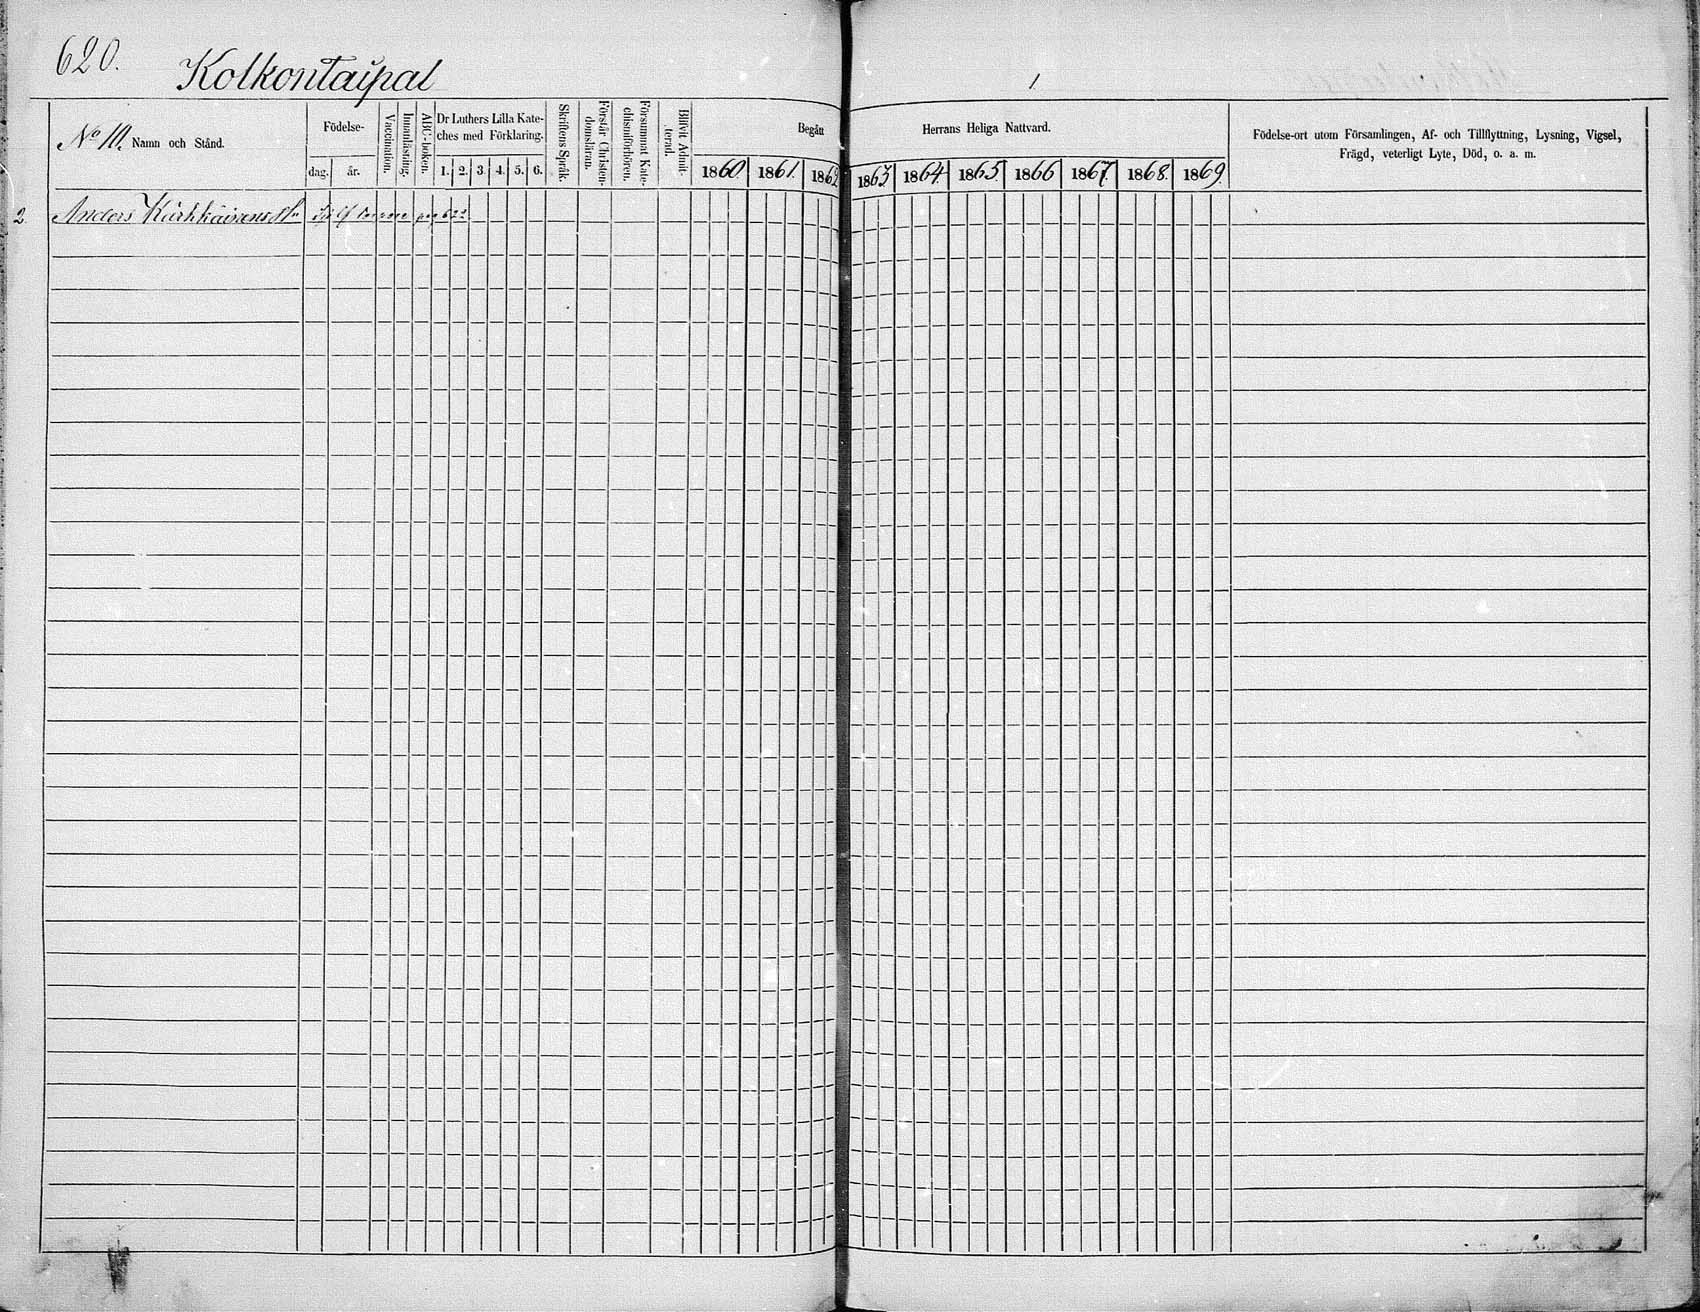 620.
Kolkontaipal
1.
No 10. Namn och Stånd.
Födelse-
dag. år.
Vaccination.
Innanläsning.
ABC-boken.
Dr Luthers Lilla Kate-
ches med Förklaring.
1. 2. 3. 4. 5. 6.
Skriftens Språk.
Förstår Christen-
domsläran.
Försummat Kate-
chismiförhören.
Blifvit Admit-
terad.
Begått
1860 1861. 1862
Herrans Heliga Nattvard.
1863 1864 1865 1866 1867 1868. 1869.
Födelse-ort utom Församlingen, Af- och Tillflyttning, Lysning, Vigsel,
Frägd, veterligt Lyte, Död, o. a. m.
2. Anders pag 622